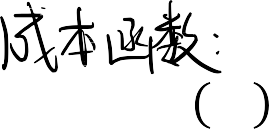 成本函数:
( )